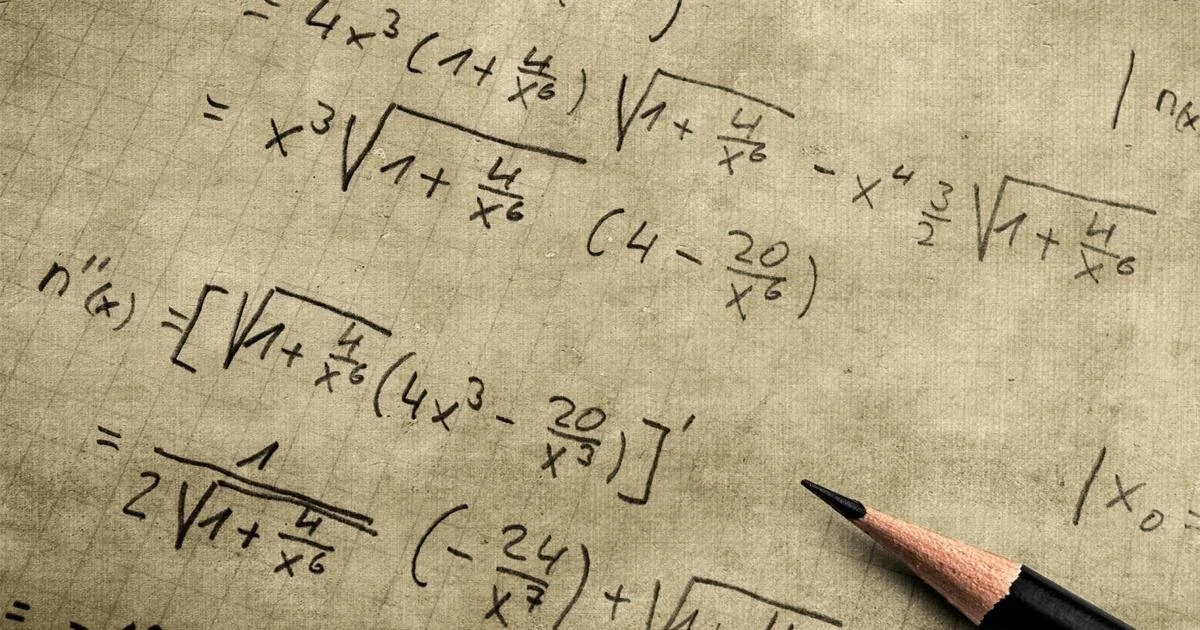 = 4x³(1+4/x⁶) √(1+4/x⁶) - x⁴ 3/2 √(1+4/x⁶)
= x³√(1+4/x⁶) (4 - 20/x⁶)
n''(x) = [√(1+4/x⁶)(4x³ - 20/x³)]'
= 1/(2√(1+4/x⁶)) (-24/x⁷) + √
| n(x
| x₀ =